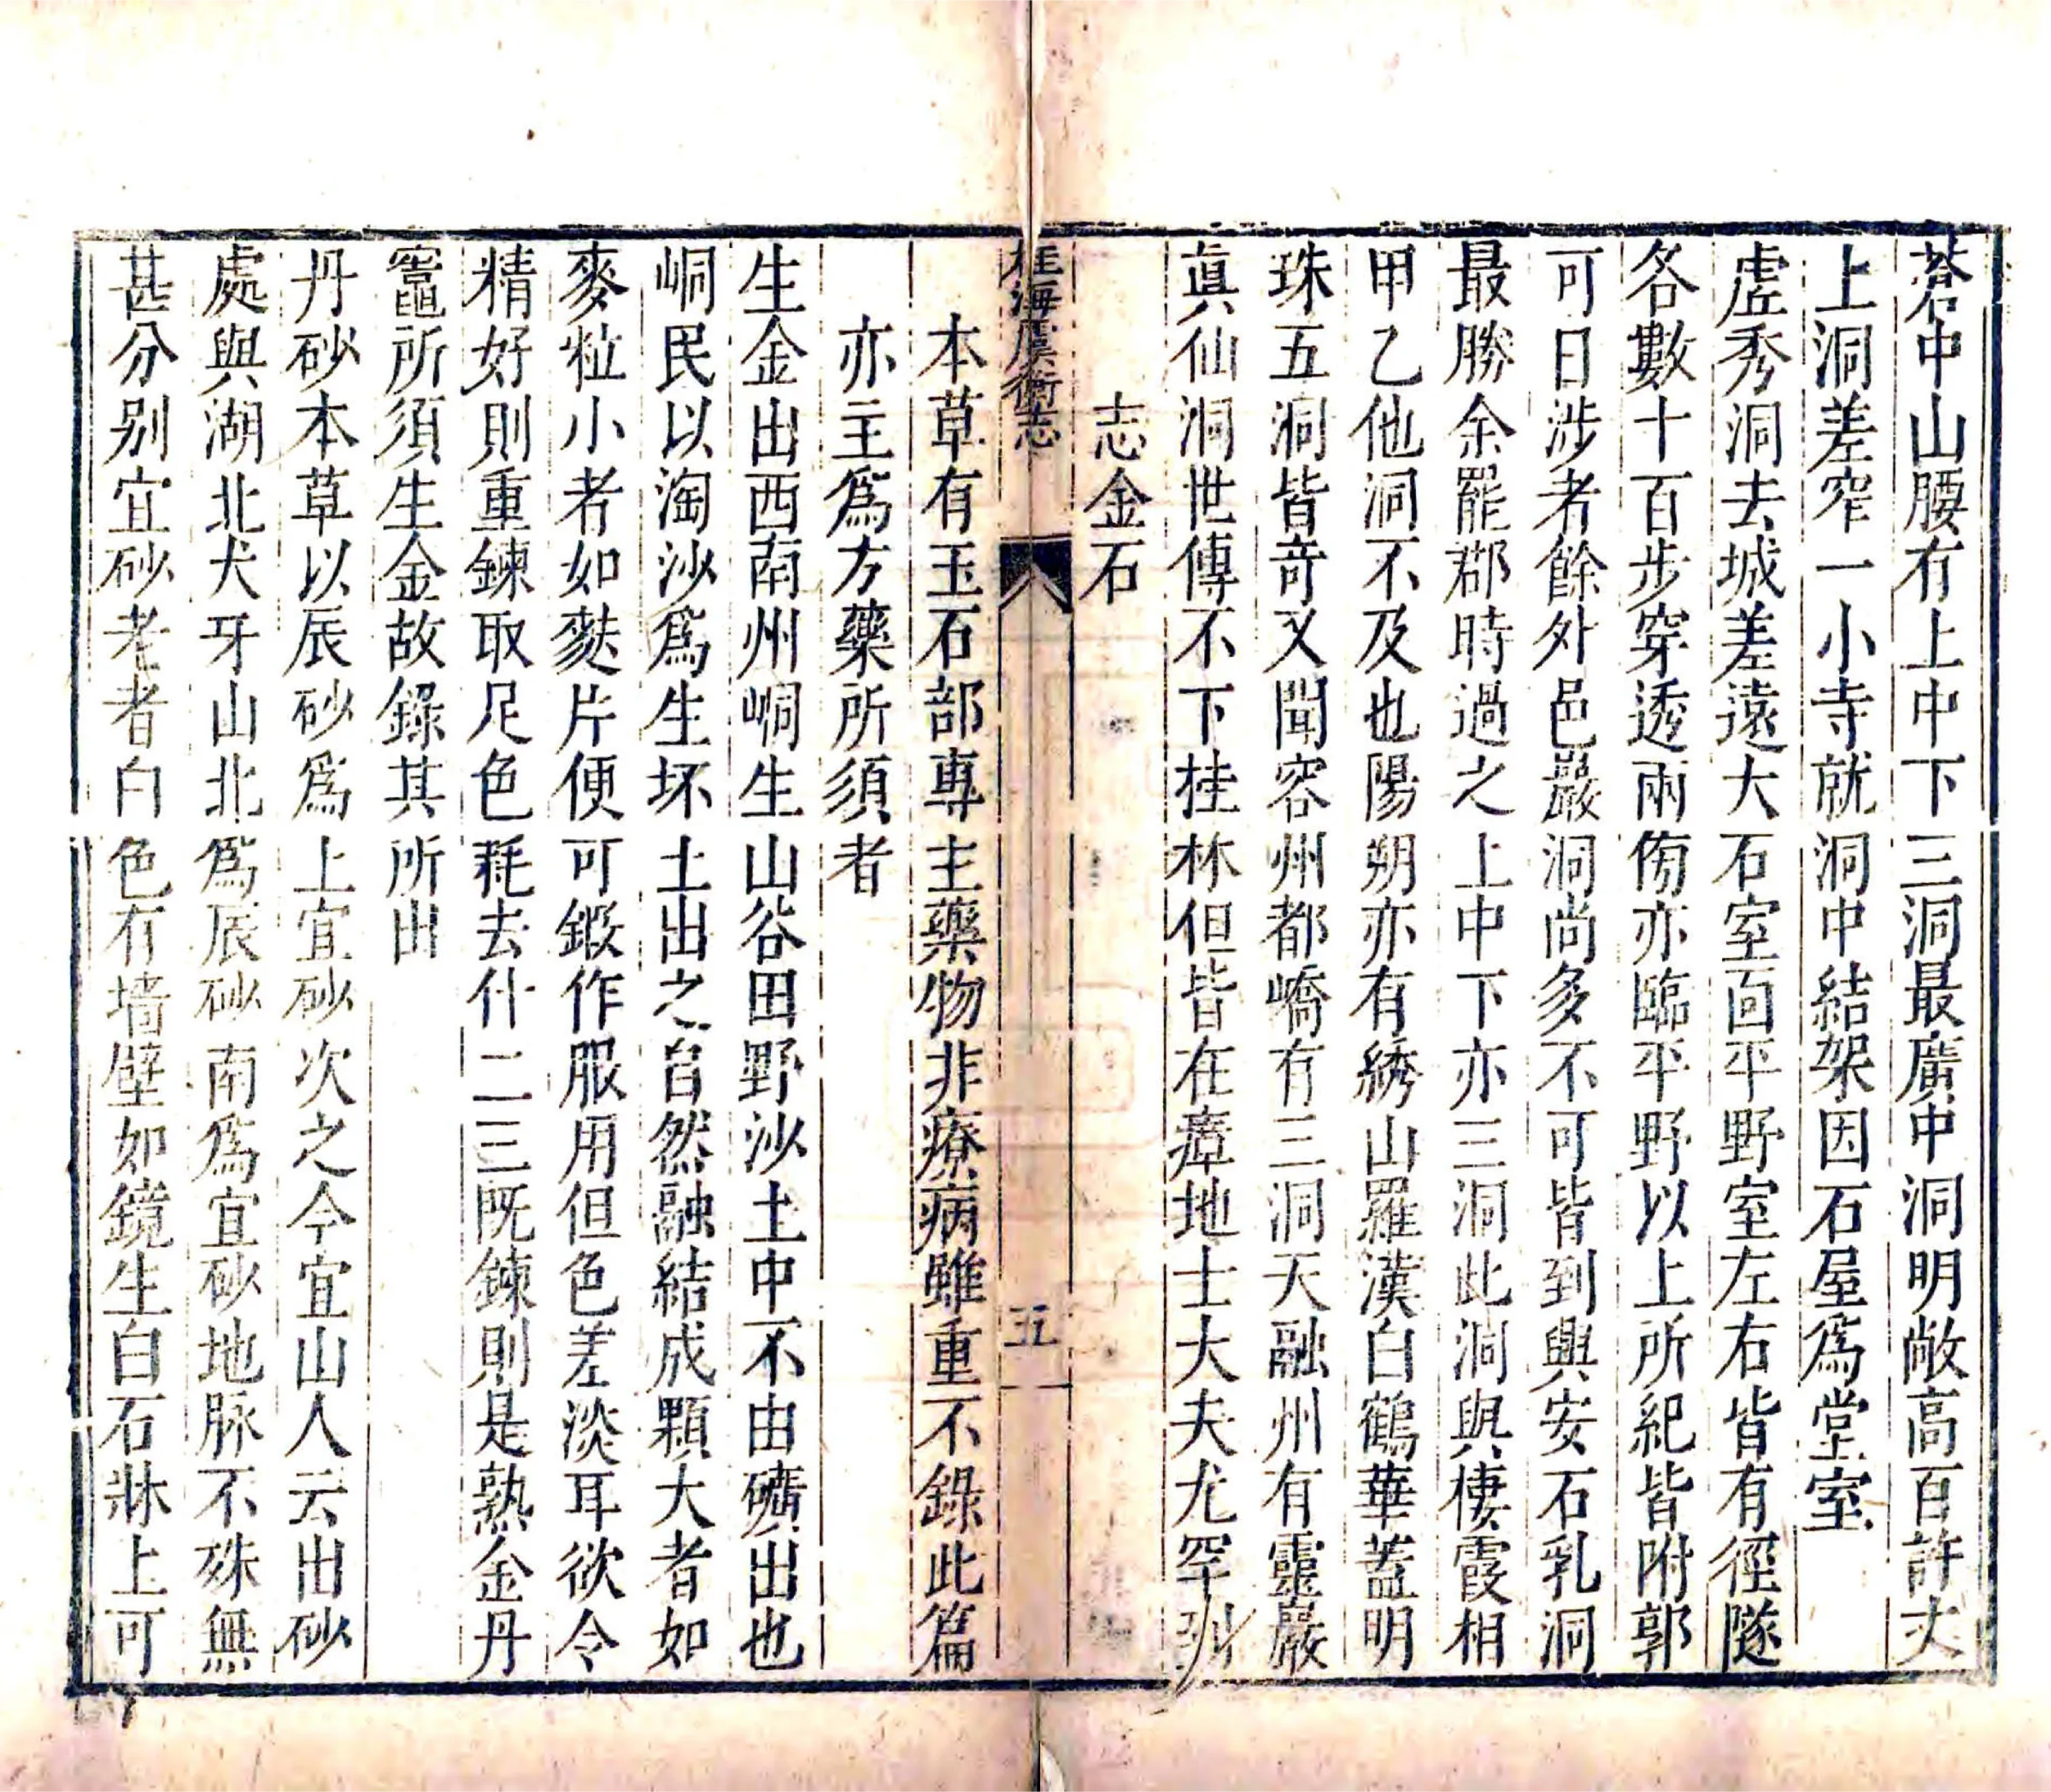 蒼中山腰有上中下三洞最廣中洞明敞高百許丈
上洞差窄一小寺就洞中結架因石屋爲堂室
虛秀洞去城差遠大石室面平野室左右皆有徑隧
各數十百步穿透兩傍亦臨平野以上所紀皆附郭
可日涉者餘外邑巖洞尚多不可皆到興安石乳洞
最勝余罷郡時過之上中下亦三洞此洞與棲霞相
甲乙他洞不及也陽朔亦有綉山羅漢白鶴華蓋明
珠五洞皆竒又聞容州都嶠有三洞天融州有靈巖
眞仙洞世傳不下桂林但皆在瘴地士大夫尤罕到
志金石
桂海虞衡志
五
本草有玉石部專主藥物非療病雖重不錄此篇
亦主爲方藥所須者
生金出西南州峒生山谷田野沙土中不由礦出也
峒民以淘沙爲生坏土出之自然融結成顆大者如
麥粒小者如麩片便可鍛作服用但色差淡耳欲令
精好則重鍊取足色耗去什二三既鍊則是熟金丹
竈所須生金故錄其所出
丹砂本草以辰砂爲上宜砂次之今宜山人云出砂
處與湖北犬牙山北爲辰砂南爲宜砂地脉不殊無
甚分别宜砂老者白色有墙壁如鏡生白石牀上可